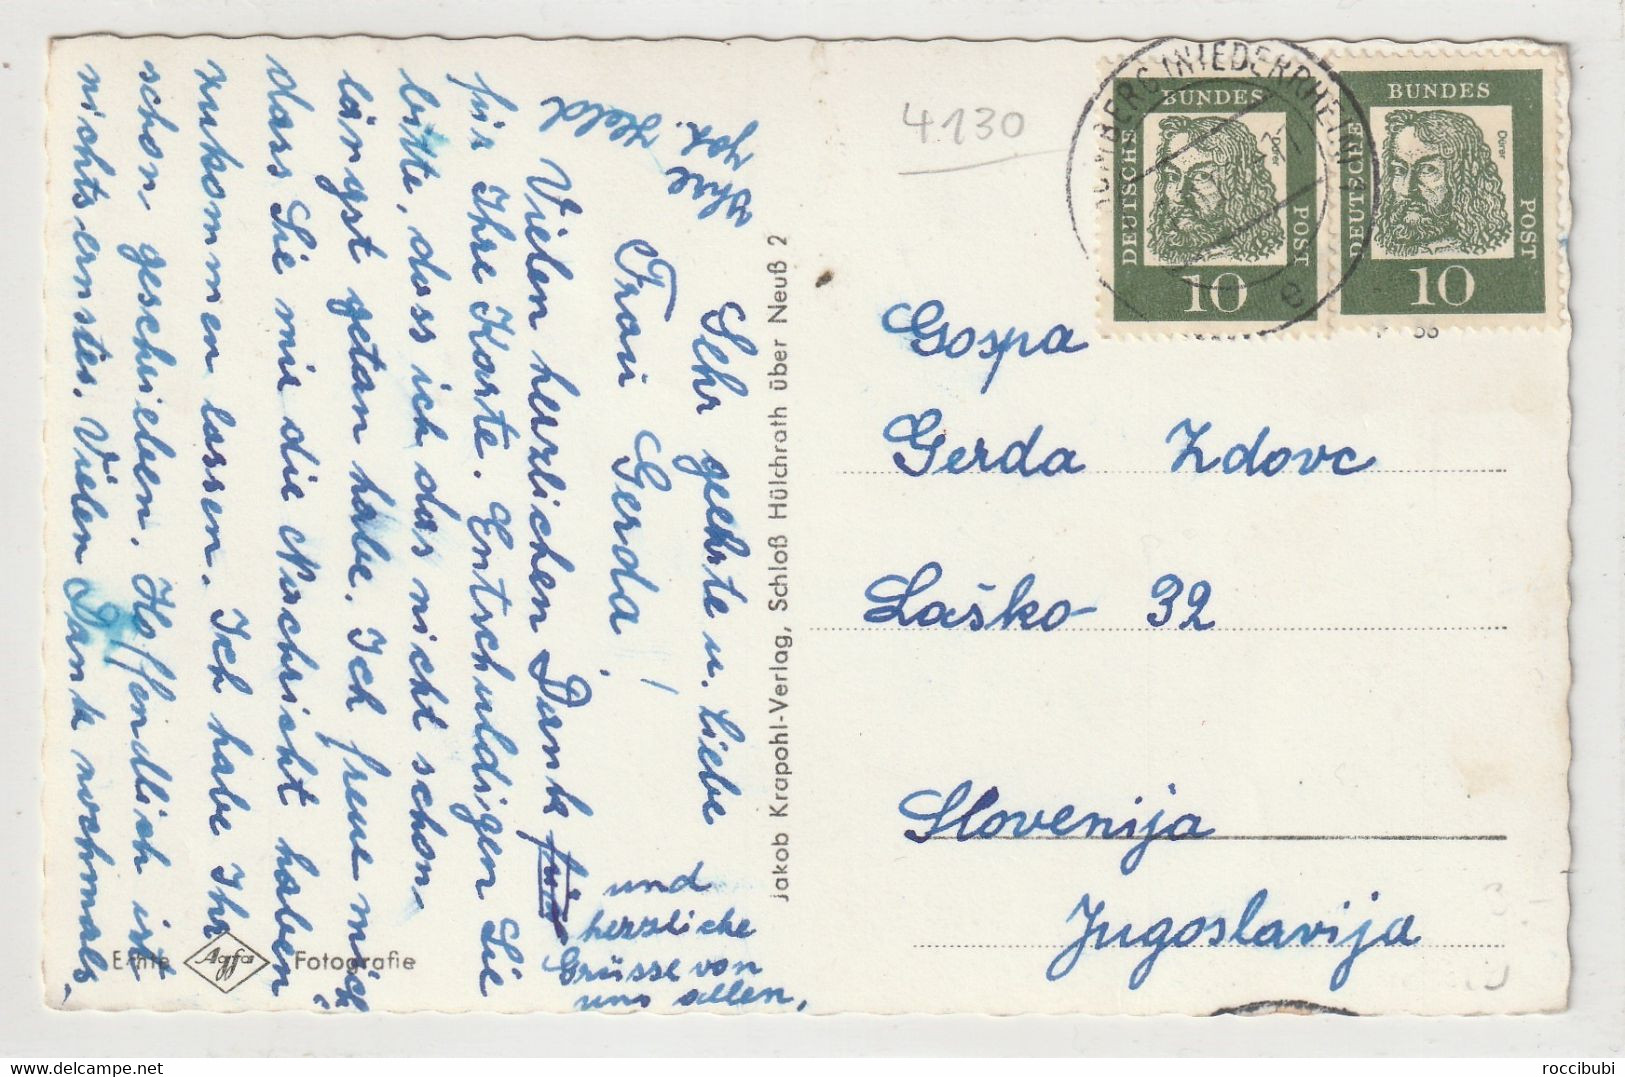 Sehr geehrte u. liebe
Frau Gerda!
Vielen herzlichen Dank für
für Ihre Karte. Entschuldigen Sie
bitte, dass ich das nicht schon
längst getan habe. Ich freue mich,
dass Sie mir die Nachricht haben
zukommen lassen. Ich habe Ihr
schon geschrieben. Hoffendlich ist
nichts ernstes. Vielen Dank nochmals,
und
herzliche
Grüsse von
uns allen,
Held
Jakob Krapohl-Verlag, Schloß Hülchrath über Neuß 2
Echte Agfa Fotografie
4130
BERG (NIEDERRHEIN)
e
DEUTSCHE BUNDES POST
10
DEUTSCHE BUNDES POST
Dürer
10
Gospa
Gerda Zdovc
Laško 32
Slovenija
Jugoslavija
roccibubi